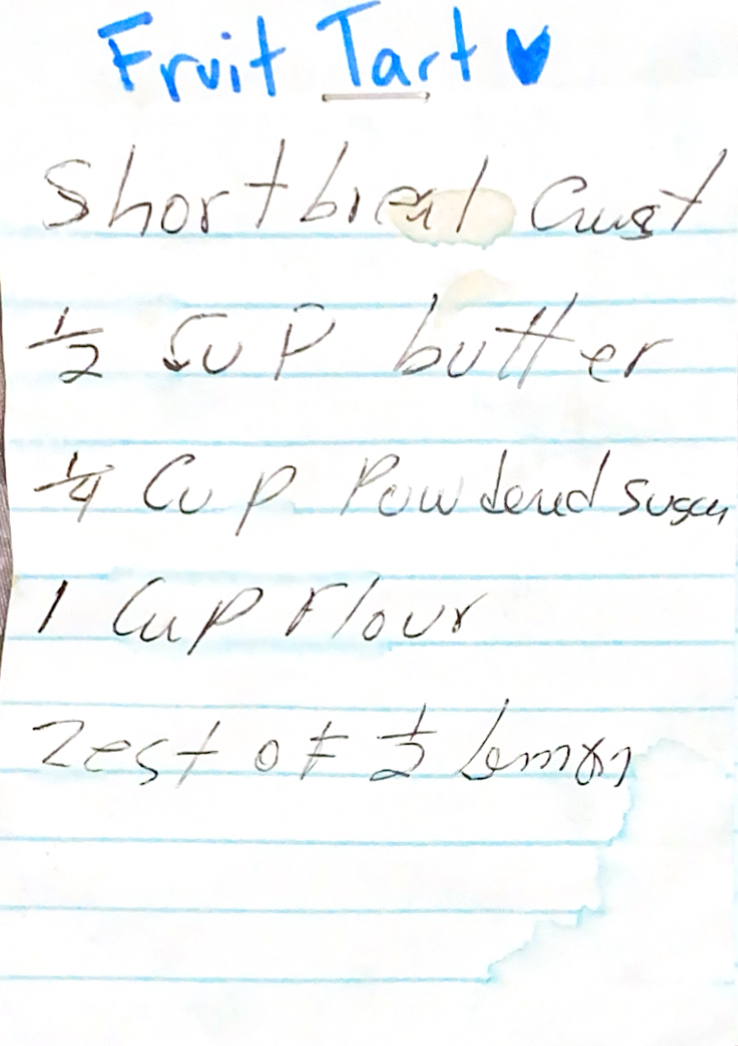 Fruit Tart ♥
Shortbread Crust
1/2 cup butter
1/4 Cup Powdered sugar
1 Cup Flour
Zest of 1/2 Lemon